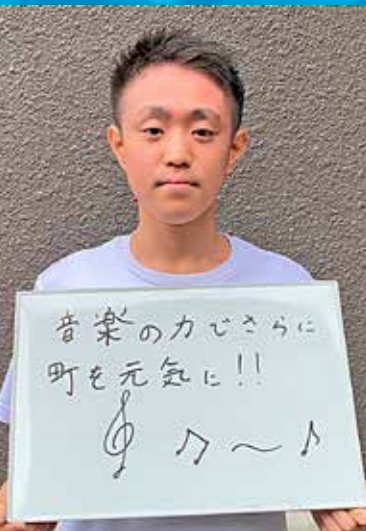 音楽の力でさらに
町を元気に!!
♫〜♪